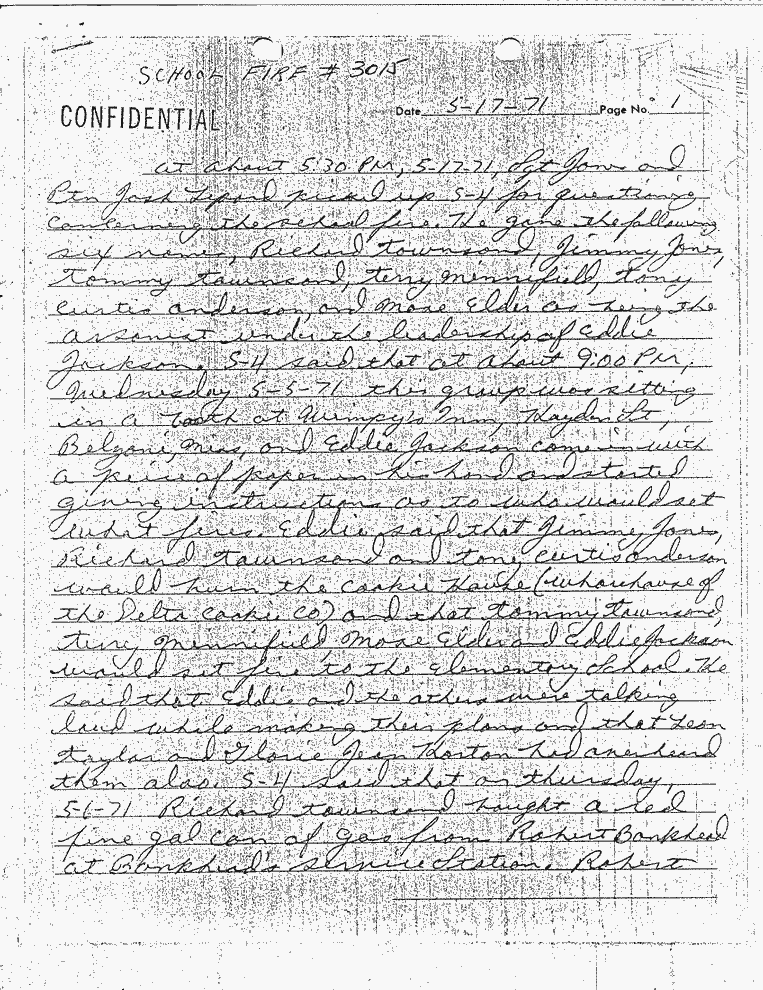 SCHOOL FIRE # 3015
CONFIDENTIAL
Date 5-17-71 Page No. 1
at about 5:30 PM, 5-17-71, Sgt Jones and
Ptn Josh picked up S-4 for questioning
concerning the school fire. The gave the following
six names, Richard townsand, Jimmy Jones,
tommy townsand, terry minnifield, tony
curtis anderson, and Mose Elder as being the
arsonist under the leadership of Eddie
Jackson. S-4 said that at about 9:00 PM,
Wednesday 5-5-71 this group was sitting
in a booth at Wimpy's Inn, Hayden St,
Belzoni, Miss, and Eddie Jackson come in with
a peice of paper in his hand and started
giving instructions as to who would set
what fires. Eddie said that Jimmy Jones,
Richard townsand and tony curtis anderson
would burn the cookie House (wharehouse of
the Delta cookie co) and that tommy townsand,
terry minnifield, Mose Elder and Eddie Jackson
would set fire to the Elementory School. The
said that Eddie and the others were talking
loud while making their plans and that Leon
taylor and Glorie Jean Horton had overheard
them also. S-4 said that on thursday,
5-6-71 Richard townsand bought a red
fine gal can of gas from Robert Bankhead
at Bankhead's service station. Robert